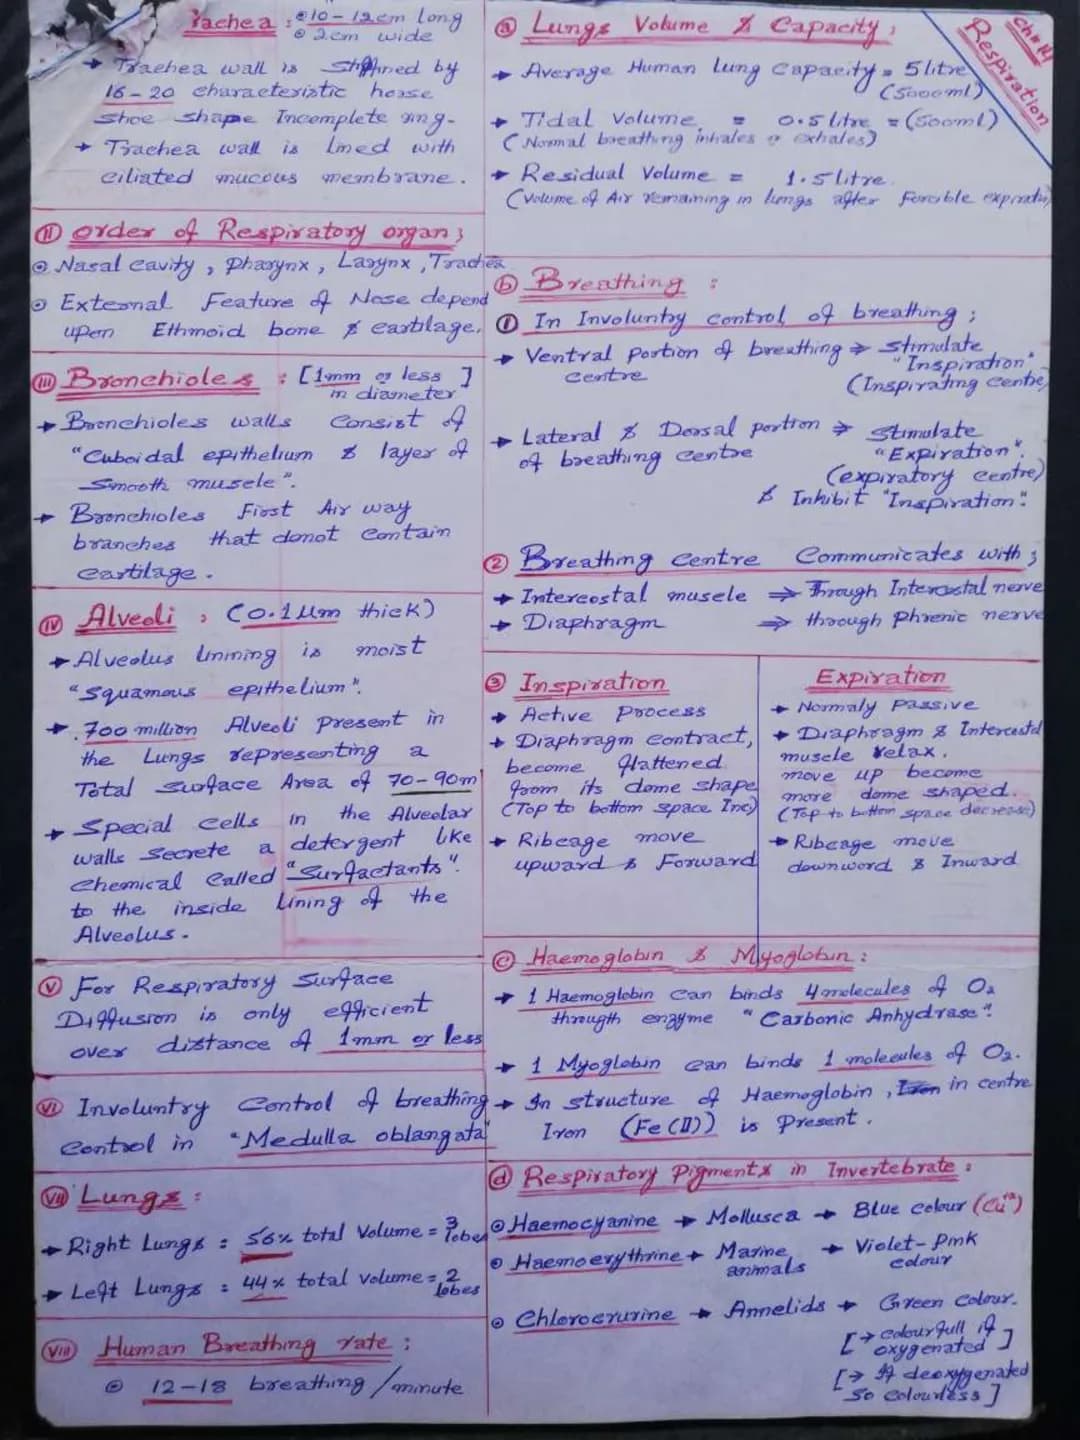 Trachea : ⊙ 10-12cm long
⊙ 2cm wide
→ Trachea wall is Stiffined by
16-20 characteristic horse
shoe shape Incomplete ring.
→ Trachea wall is lined with
ciliated mucous membrane.
(ii) Order of Respiratory organ;
⊙ Nasal cavity, pharynx, Larynx, Trachea
⊙ External Feature of Nose depend
upon Ethmoid bone & cartilage.
(iii) Bronchioles : [1mm or less]
in diameter
→ Bronchioles walls consist of
"Cuboidal epithelium & layer of
Smooth musele".
→ Bronchioles First Air way
branches that donot contain
cartilage.
(iv) Alveoli , (0.1 μm thick)
→ Alveolus linining is moist
"Squamous epithelium".
→ 700 million Alveoli present in
the Lungs representing a
Total surface Area of 70-90m
→ Special cells in the Alveolar
walls secrete a detergent like
chemical called "Surfactants".
to the inside lining of the
Alveolus.
(v) For Respiratory Surface
Diffusion is only efficient
over distance of 1mm or less
(vi) Involuntry control of breathing
control in "Medulla oblangata"
(vii) Lungs :
→ Right Lungs : 56% total volume = 3 lobes
→ Left Lungs : 44% total volume = 2 lobes
(viii) Human Breathing rate :
⊙ 12-18 breathing/minute
Ch#14
Respiration
(a) Lungs Volume & Capacity;
→ Average Human lung capacity = 5litre
(5000ml)
→ Tidal Volume = 0.5 litre = (500ml)
(Normal breathing inhales or exhales)
→ Residual Volume = 1.5litre
(Volume of Air remaining in lungs after Forcible expiration)
(b) Breathing :
(1) In Involuntry control of breathing ;
→ Ventral portion of breathing ⇒ stimulate
centre "Inspiration"
(Inspirating centre)
→ Lateral & Dorsal portion ⇒ Stimulate
of breathing centre "Expiration".
(expiratory centre)
& Inhibit "Inspiration".
(2) Breathing centre Communicates with ;
→ Intercostal musele ⇒ Through Intercostal nerve
→ Diaphragm ⇒ through phrenic nerve
(3) Inspiration
→ Active process
→ Diaphragm contract,
become flattened
from its dome shape
(Top to bottom space Inc)
→ Ribcage move
upward & Forward
Expiration
→ Normaly passive
→ Diaphragm & Intercostal
musele relax.
move up become
more dome shaped.
(Top to bottom space decrease)
→ Ribcage move
downword & Inward
(c) Haemoglobin & Myoglobin :
→ 1 Haemoglobin can binds 4 molecules of O₂
througth enzyme "Carbonic Anhydrase".
→ 1 Myoglobin can binds 1 molecules of O₂.
→ In structure of Haemoglobin, Iron in centre
Iron (Fe(II)) is Present.
(d) Respiratory Pigments in Invertebrate :
⊙ Haemocyanine → Mollusca → Blue colour (Cu⁺²)
⊙ Haemoerythrine → Marine animals → Violet-pink colour
⊙ Chlorocrurine → Annelids → Green colour.
[→ colourfull if oxygenated]
[→ If deoxygenated
so colourless]